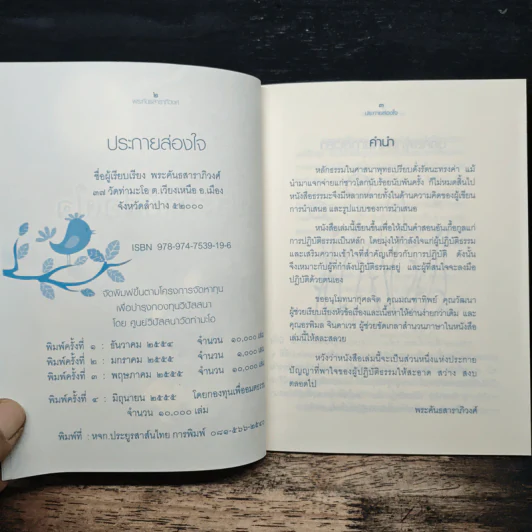 ๒
พระคันธสาราภิวงศ์
ประกายส่องใจ
ชื่อผู้เรียบเรียง พระคันธสาราภิวงศ์
๓๗ วัดท่ามะโอ ต.เวียงเหนือ อ.เมือง
จังหวัดลำปาง ๕๒๐๐๐
ISBN 978-974-7539-19-6
จัดพิมพ์ขึ้นตามโครงการจัดหาทุน
เพื่อบำรุงกองทุนวิปัสสนา
โดย ศูนย์วิปัสสนาวัดท่ามะโอ
พิมพ์ครั้งที่ ๑ : ธันวาคม ๒๕๕๔ จำนวน ๑๐,๐๐๐ เล่ม
พิมพ์ครั้งที่ ๒ : มกราคม ๒๕๕๕ จำนวน ๑,๐๐๐
พิมพ์ครั้งที่ ๓ : พฤษภาคม ๒๕๕๕ จำนวน ๑๐,๐๐๐
พิมพ์ครั้งที่ ๔ : มิถุนายน ๒๕๕๕ โดยกองทุนเพื่อ
จำนวน ๑๐,๐๐๐ เล่ม
พิมพ์ที่ : หจก.ประยูรสาส์นไทย การพิมพ์
๓
ประกายส่องใจ
คำนำ
หลักธรรมในศาสนาพุทธเปรียบดั่งรัตนะทรงค่า แม้
นำมาแจกจ่ายแก่ชาวโลกนับร้อยนับพันครั้ง ก็ไม่หมดสิ้นไป
หนังสือธรรมะจึงมีหลากหลายทั้งในด้านความคิดของผู้เขียน
การนำเสนอ และรูปแบบของการนำเสนอ
หนังสือเล่มนี้เขียนขึ้นเพื่อให้เป็นคำสอนอันเกื้อกูลแก่
การปฏิบัติธรรมเป็นหลัก โดยมุ่งให้กำลังใจแก่ผู้ปฏิบัติธรรม
และเสริมความเข้าใจที่สำคัญเกี่ยวกับการปฏิบัติ ดังนั้น
จึงเหมาะกับผู้ที่กำลังปฏิบัติธรรมอยู่ และผู้ที่สนใจจะลงมือ
ปฏิบัติด้วยตนเอง
ขออนุโมทนากุศลจิต คุณมณฑาทิพย์ คุณวัฒนา
ผู้ช่วยเรียบเรียงหัวข้อเรื่องและเนื้อหาให้อ่านง่ายกว่าเดิม และ
คุณอรพิมล จินดาเวช ผู้ช่วยขัดเกลาสำนวนภาษาในหนังสือ
เล่มนี้ให้สละสลวย
หวังว่าหนังสือเล่มนี้จะเป็นส่วนหนึ่งแห่งประกาย
ปัญญาที่พาใจของผู้ปฏิบัติธรรมให้สะอาด สว่าง สงบ
ตลอดไป
พระคันธสาราภิวงศ์